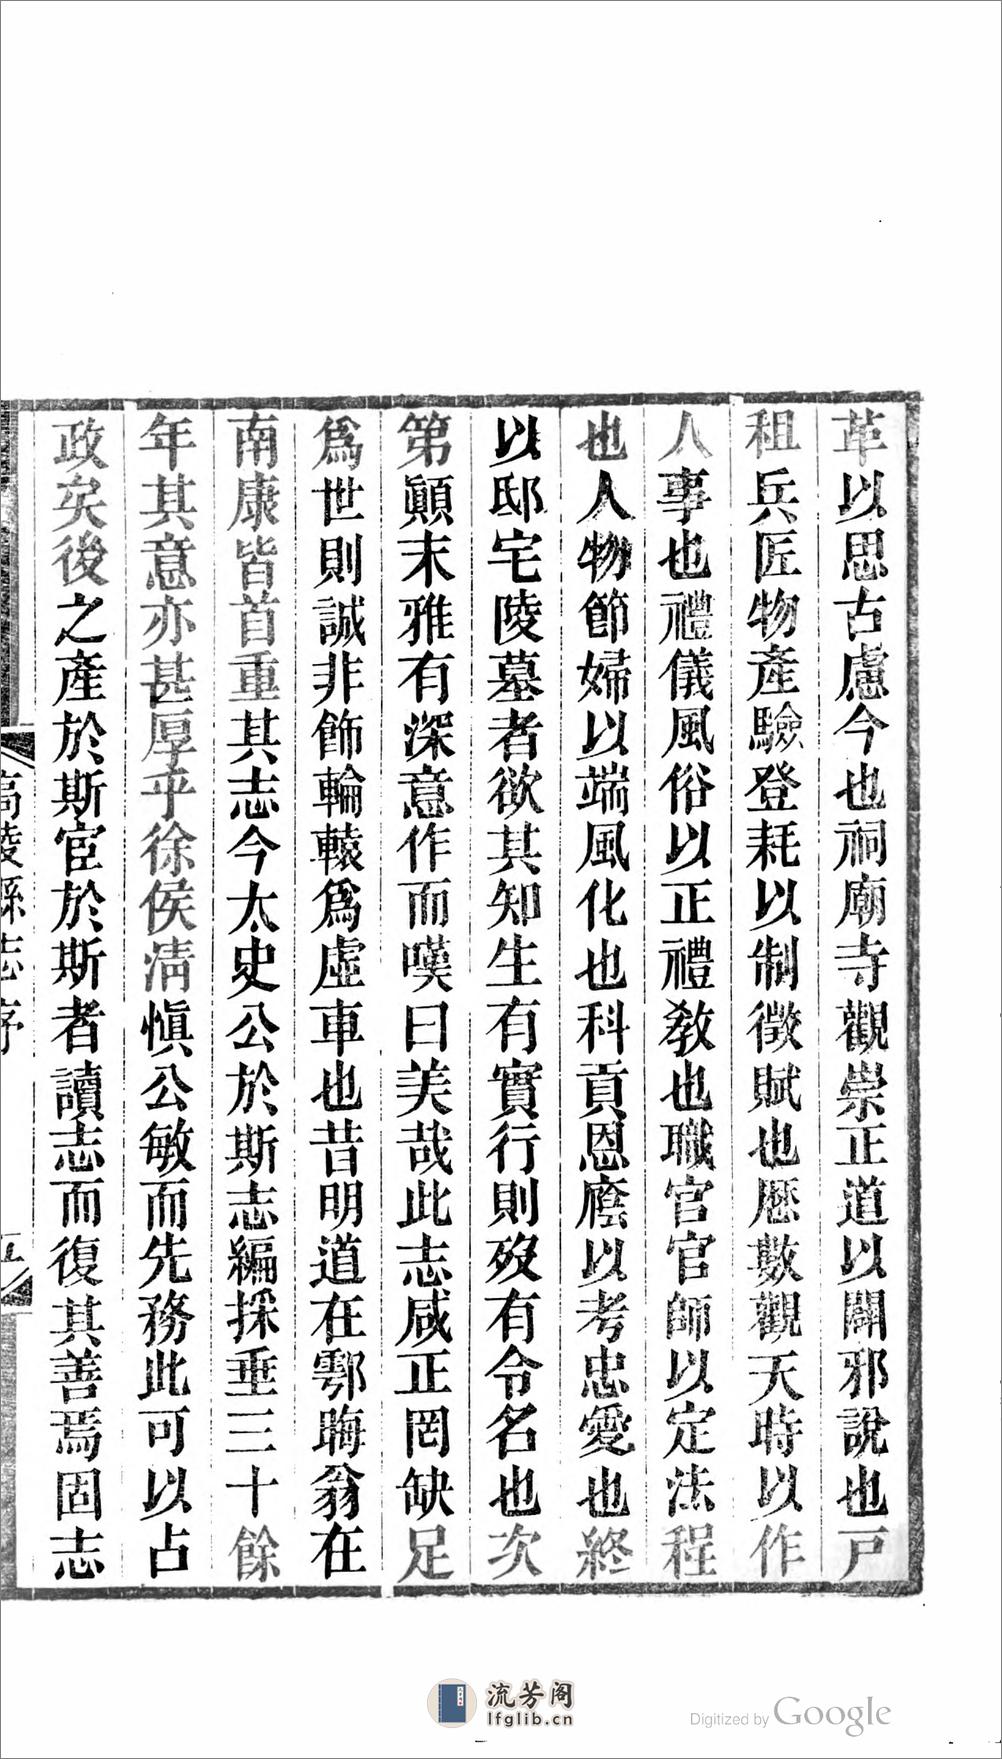 革以思古慮今也祠廟寺觀崇正道以闢邪說也戸
租兵匠物產驗登耗以制徵賦也歷數觀天時以作
人事也禮儀風俗以正禮敎也職官官師以定法程
也人物節婦以端風化也科貢恩廕以考忠愛也終
以邸宅陵墓者欲其知生有實行則歿有令名也次
第顚末雅有深意作而嘆曰美哉此志咸正罔缺足
爲世則誠非飾輪轅爲虛車也昔明道在鄠晦翁在
南康皆首重其志今太史公於斯志編採垂三十餘
年其意亦甚厚乎徐侯淸愼公敏而先務此可以占
政矣後之產於斯宦於斯者讀志而復其善焉固志
高陵縣志序
五
流芳阁
lfglib.cn
Digitized by Google